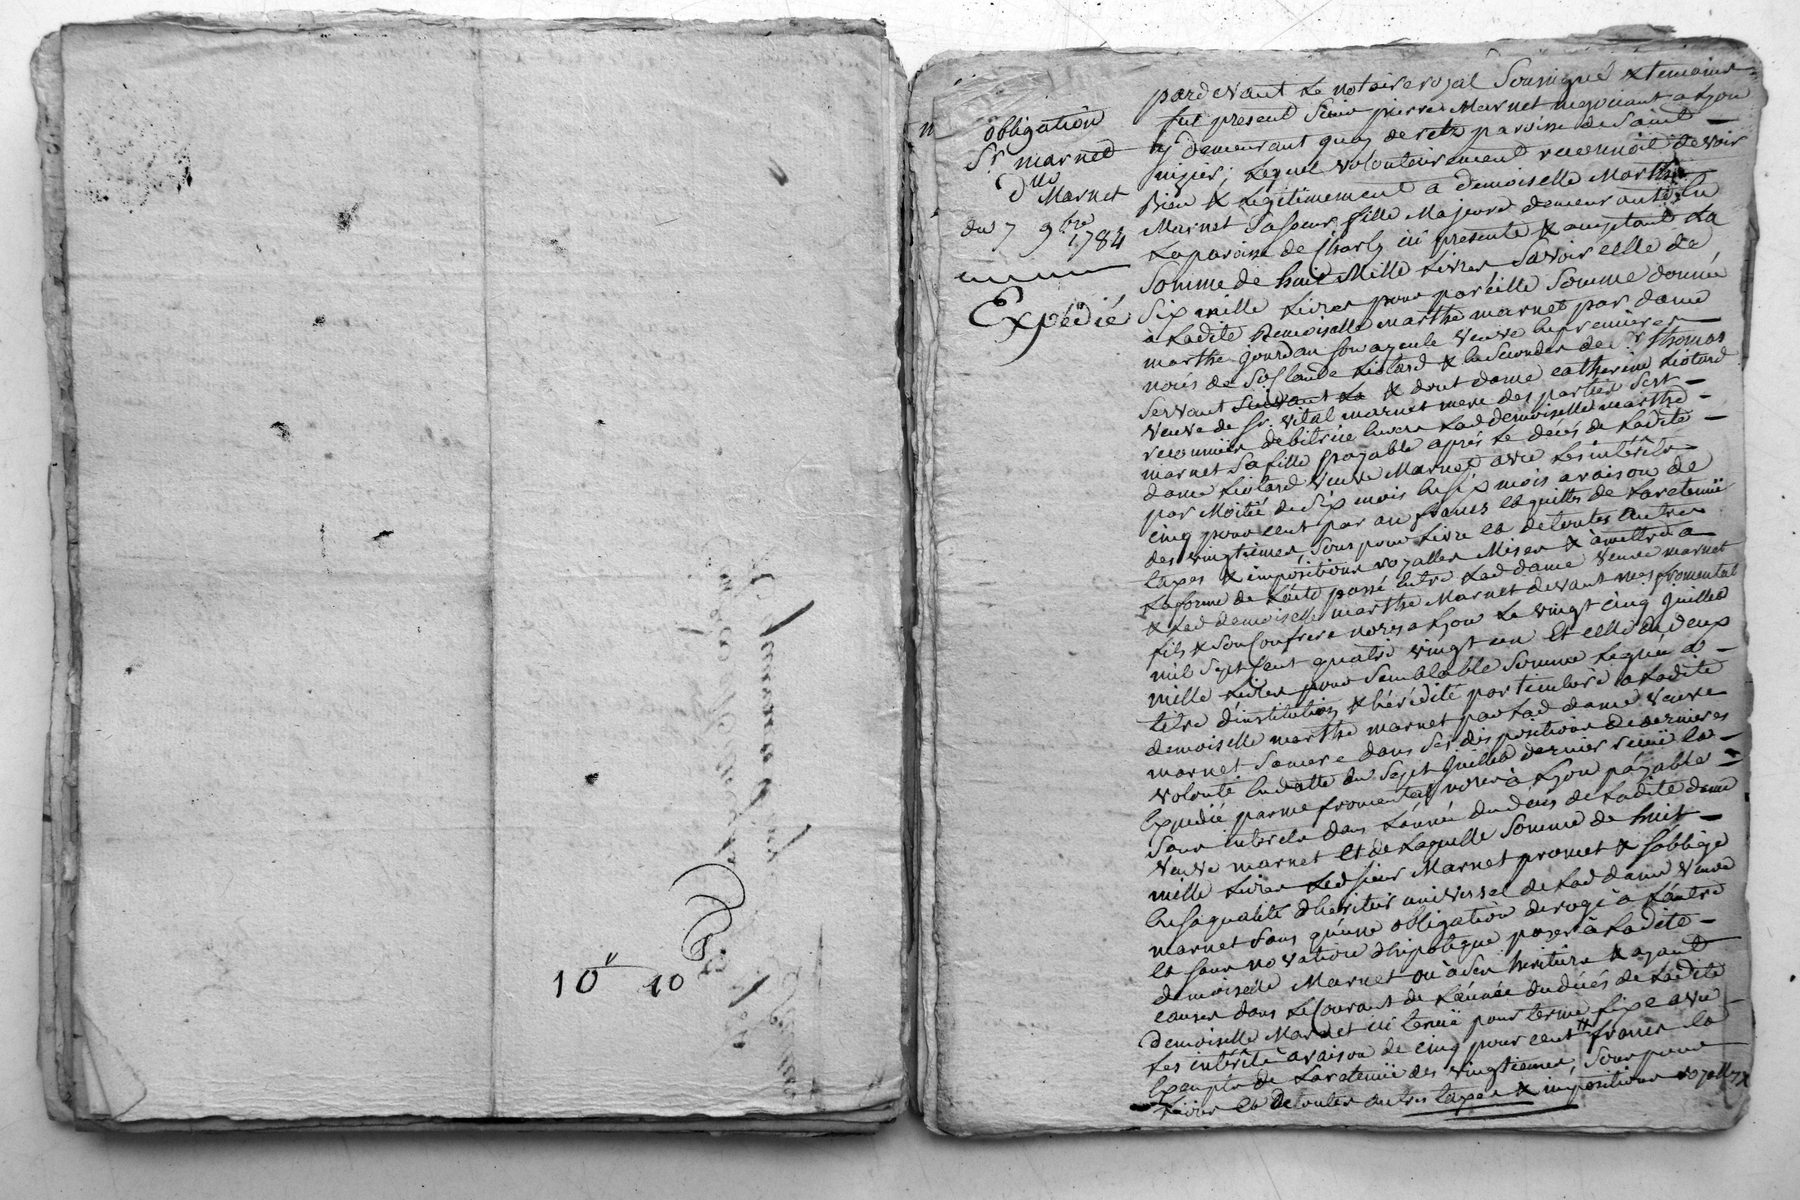 10" 10
obligation
Sr. marnet
Dlle
Marnet
du 7 9bre
1784
Expédié
pardevant Le notaire royal Soussigné & temoins
fut present Sieur pierre Marnet negociant a Lyon
y demeurant quay de retz paroisse de Saint
nizier, Lequel volontairement reconnoit devoir
Bien & Legitimement a demoiselle Marthe
Marnet Sa soeur fille Majeure demeurante En
La paroisse de Charly ici presente & acceptante La
Somme de huit Mille Livres Savoir celle de
Six mille Livres pour pareille Somme donnée
à Ladite Demoiselle marthe marnet par dame
marthe jourdan son ayeule veuve En premieres
noces de Sr Claude Liotard & En Secondes de Sr thomas
Servant Suivant La & dont dame catherine Liotard
veuve de Sr. vital marnet mere des parties s'est
reconnüe debitrice Envers Lad demoiselle marthe
marnet Sa fille payable aprés Le décés de Ladite
dame Liotard veuve Marnet avec Les intérêts
par Moitié de Six mois En six mois a raison de
cinq pour cent par an francs et quittes de La retenüe
des vingtièmes, Sous pour Livre et de toutes autres
taxes & impositions royalles Mises & à mettre a
La forme de L'acte passé Entre Lad dame veuve marnet
& Lad demoiselle marthe Marnet devant Mes fromental
fils & Son Confrere nores a Lyon Le vingt cinq Juillet
mil Sept Cent quatre vingt un Et celle de deux
mille Livres pour Semblable Somme Leguée a
titre d'institution & hérédité particuliere a Ladite
demoiselle marthe marnet par Lad dame veuve
marnet Sa mere dans Ses dispositions de dernieres
volonté En datte du Sept Juillet dernier reçuë et
Expedié par me fromental nore à Lyon payable
Sans interets dans L'année du deces de Ladite dame
veuve marnet Et de Laquelle Somme de huit
mille Livres Led sieur Marnet promet & s'obblige
En Sa qualité d'heritier universel de Lad dame veuve
marnet Sans qu'une obligation deroge à L'autre
et Sans novation d'hipoteque payer à Ladite
demoiselle Marnet ou à Ses heritiers & ayant
causes dans Le Courant de L'année du décés de Ladite
Demoiselle Marnet ici tenuë pour terme fixe avec
Les intérêts à raison de cinq pour cent francs et
Exempts de La retenüe des vingtiemes, Sous pour
Livre et de toutes autres taxes & impositions royalles